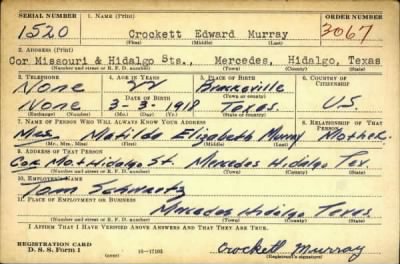 SERIAL NUMBER 1. NAME (Print) ORDER NUMBER
1520 Crockett Edward Murray 3067
(First) (Middle) (Last)
2. ADDRESS (Print)
Cor Missouri & Hidalgo Sts., Mercedes, Hidalgo, Texas
(Number and street or R. F. D. number) (Town) (County) (State)
3. TELEPHONE 4. AGE IN YEARS 5. PLACE OF BIRTH 6. COUNTRY OF CITIZENSHIP
None Brownsville
DATE OF BIRTH
None 3-3-1918 Texas U.S.
(Mo.) (Day) (Yr.)
7. NAME OF PERSON WHO WILL ALWAYS KNOW YOUR ADDRESS 8. RELATIONSHIP OF THAT PERSON
Mrs. Matilda Elizabeth Murray Mother
(Mr., Mrs., Miss) (First) (Middle) (Last)
9. ADDRESS OF THAT PERSON
Cor Mo. & Hidalgo St. Mercedes Hidalgo Tex.
(Number and street or R. F. D. number) (Town) (County) (State)
10. EMPLOYER'S NAME
Tom Schwartz
11. PLACE OF EMPLOYMENT OR BUSINESS
Mercedes Hidalgo Texas
(Number and street or R. F. D. number) (Town) (County) (State)
I AFFIRM THAT I HAVE VERIFIED ABOVE ANSWERS AND THAT THEY ARE TRUE.
REGISTRATION CARD
D. S. S. Form 1 16-17105 Crockett Murray
(Registrant's signature)